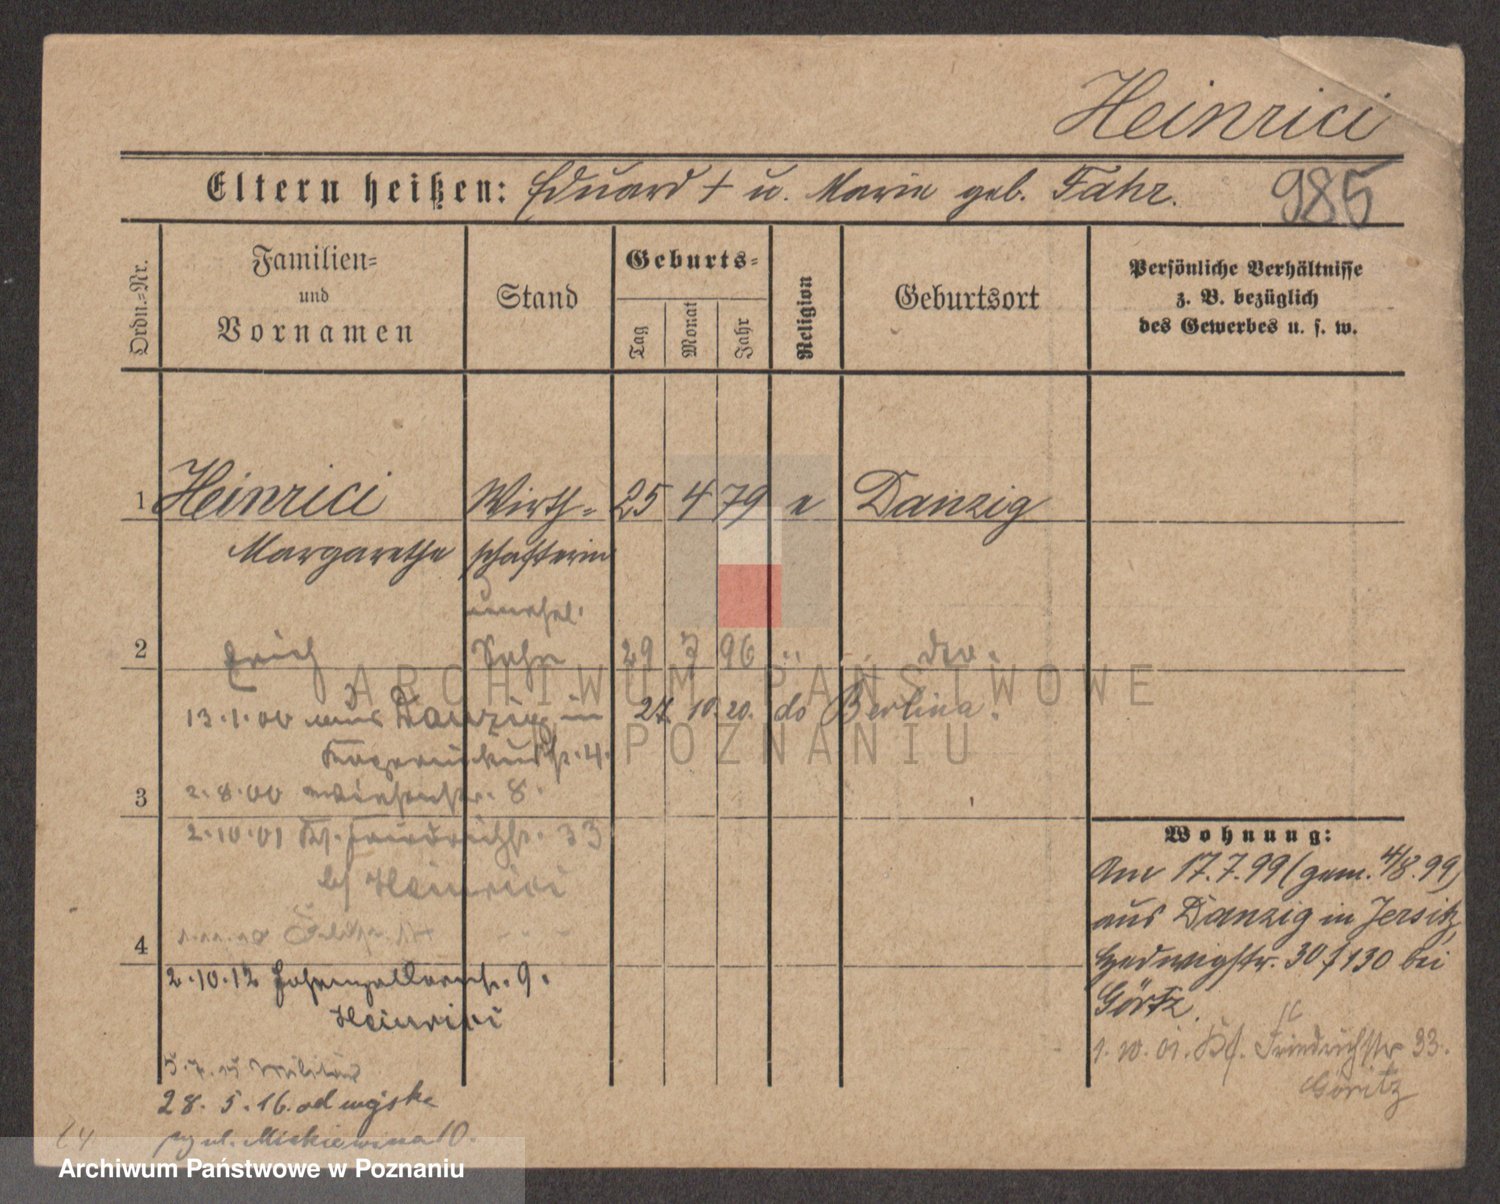 Heinrici
Eltern heißen: Eduard † u. Marie geb. Fahr.
985
Ordn.-Nr.
Familien-
und
Vornamen
Stand
Geburts-
Tag
Monat
Jahr
Religion
Geburtsort
Persönliche Verhältnisse
z. B. bezüglich
des Gewerbes u. s. w.
1 Heinrici Wirth- 25 4 79 e Danzig
Margarethe schafterin
unehel.
2 Erich Sohn 29 7 96 " do.
13.1.00 aus Danzig in
27 10. 20. do Berlina.
4.
3
2.8.00 8.
2.10.01 Kl. Friedrichstr. 33
b/ Heinrici
4
2.10.12 Hohenzollernstr. 9.
Heinrici
Militär
28. 5. 16. od wojska
ul. Mickiewicza 10.
Wohnung:
Am 17.7.99 (gem. 4/8.99)
aus Danzig in Jersitz,
Hedwigstr. 30 f 130 bei
Görtz.
1. 10. 01. Kl. Friedrichstr 33.
Göritz
24
ARCHIWUM PAŃSTWOWE
W POZNANIU
Archiwum Państwowe w Poznaniu